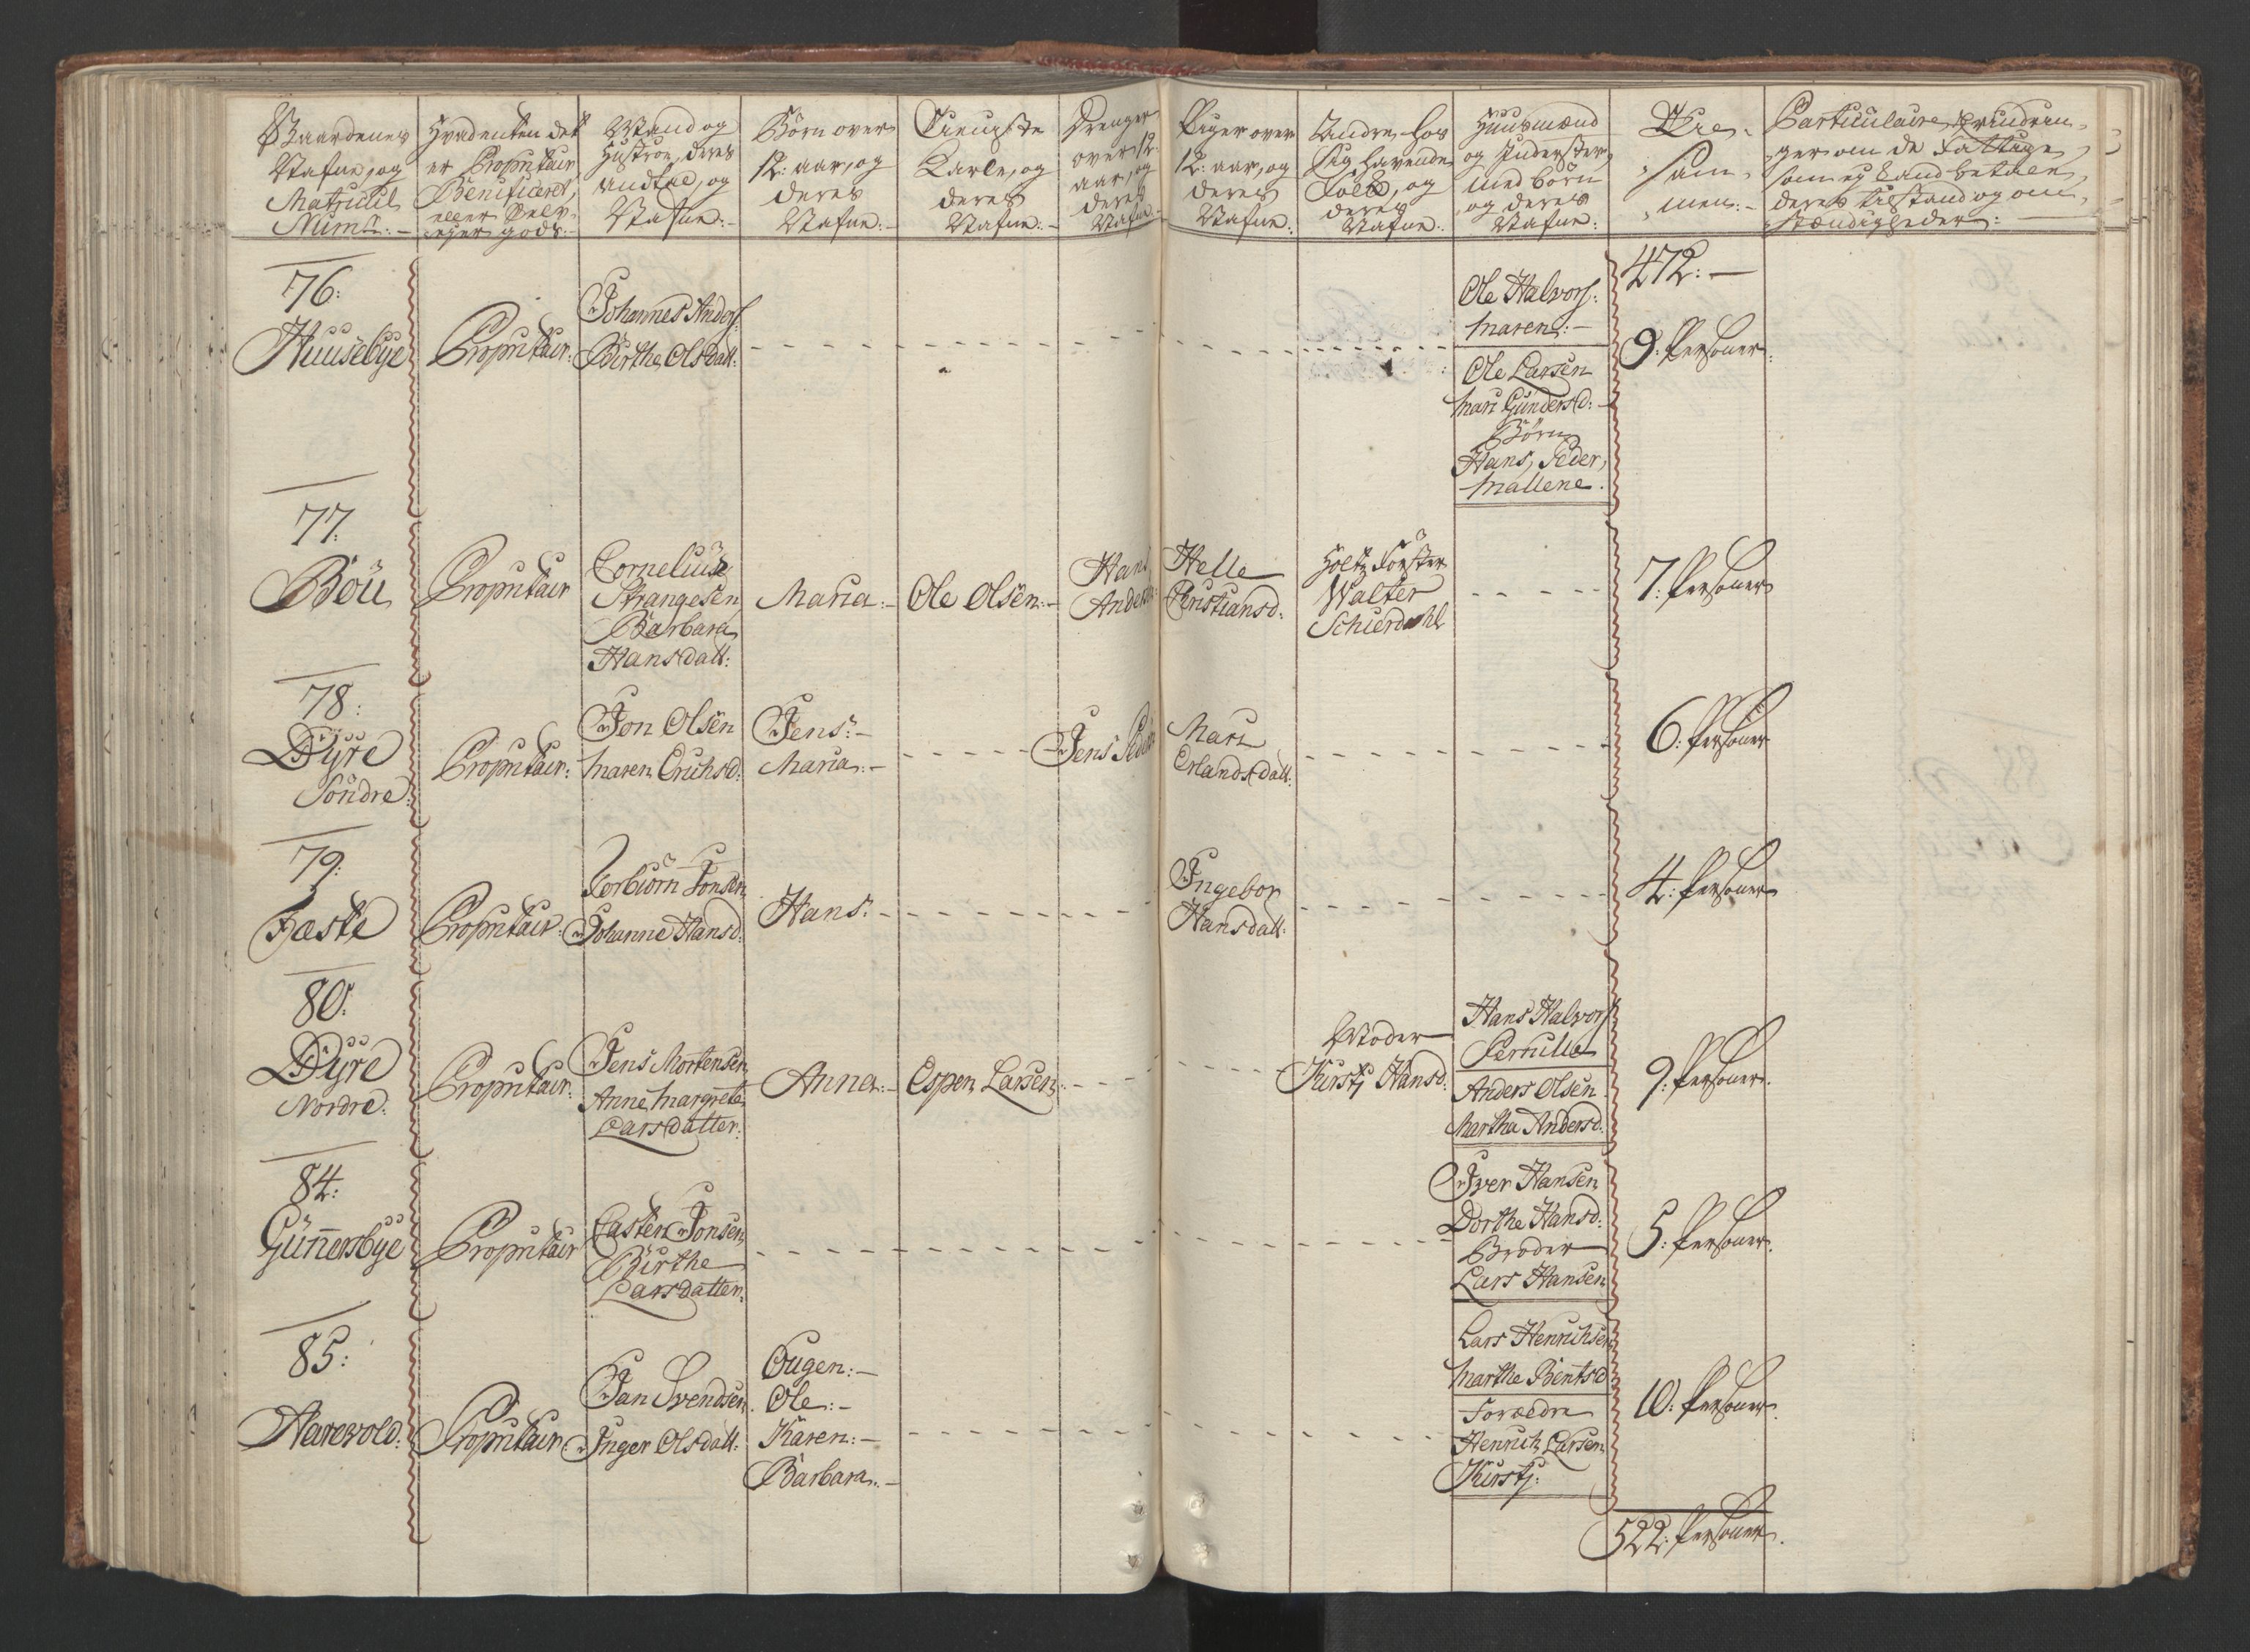 Gaardenes
Nafne, og
Matricul
Num:
Hvadenten det
er Propritair
Benificeret,
eller Selv-
ejer gods:
Mand og
Hustroe, deres
andtal, og
Nafne:
Børn over
12: aar, og
deres
Nafne:
Tieniste
Karle, og
deres
Nafne:
Drenger
over 12
aar, og
deres
Nafne
Piger over
12: aar, og
deres
Nafne:
Andre hos
sig havende
Folk, og
deres
Nafne:
Huusmænd
og Inderster,
med børn
og deres
Nafne:
Tilsammen:
Particulaire Erindrin-
ger om de Fattige
som ej kand betale,
deres tilstand og om-
stændigheder:
472:
76:
Huusebye
Propritair:
Johannes Anders:
Birthe Olsdatt:
Ole Halvors:
Maren:
Ole Larsen
Mari Gundersd:
Børn
Hans, Peder,
Mallene.
9: Personer:
77:
Böu
Propritair
Cornelius
Strangesen
Barbara
Hansdatt:
Maria:
Ole Olsen:
Hans
Anders
Helle
Christiansd:
Holtz Forster
Walter
Schierdahl
7: Personer
78:
Dyre
Söndre:
Propritair:
Jon Olsen
Maren Erichsd:
Jens:
Maria:
Jens Peders
Mari
Erlandsdatt:
6: Personer
79:
Fæste
Propritair:
Torbiörn Jonsen
Johanne Hansd:
Hans:
Ingebor
Hansdatt:
4: Personer
80:
Dyre
Nordre:
Propritair:
Jens Mortensen
Anne Margrete
Larsdatter:
Anna:
Espen Larsen:
Moder
Kirstj Hansd:
Hans Halvors
Pernille
Anders Olsen
Martha Andersd:
9: Personer:
84:
Gunnersbye
Propritair
Casten Jonsen
Birthe
Larsdatter:
Iver Hansen
Dorthe Hansd:
Broder
Lars Hansen
5: Personer:
85:
Harevold:
Propritair
Jan Svendsen
Inger Olsdatt:
Eugen:
Ole:
Karen:
Barbara:
Lars Henrichsen
Marthe Bentsd
Forældre
Henrich Larsen
Kirstj:
10: Personer:
522: Personer.